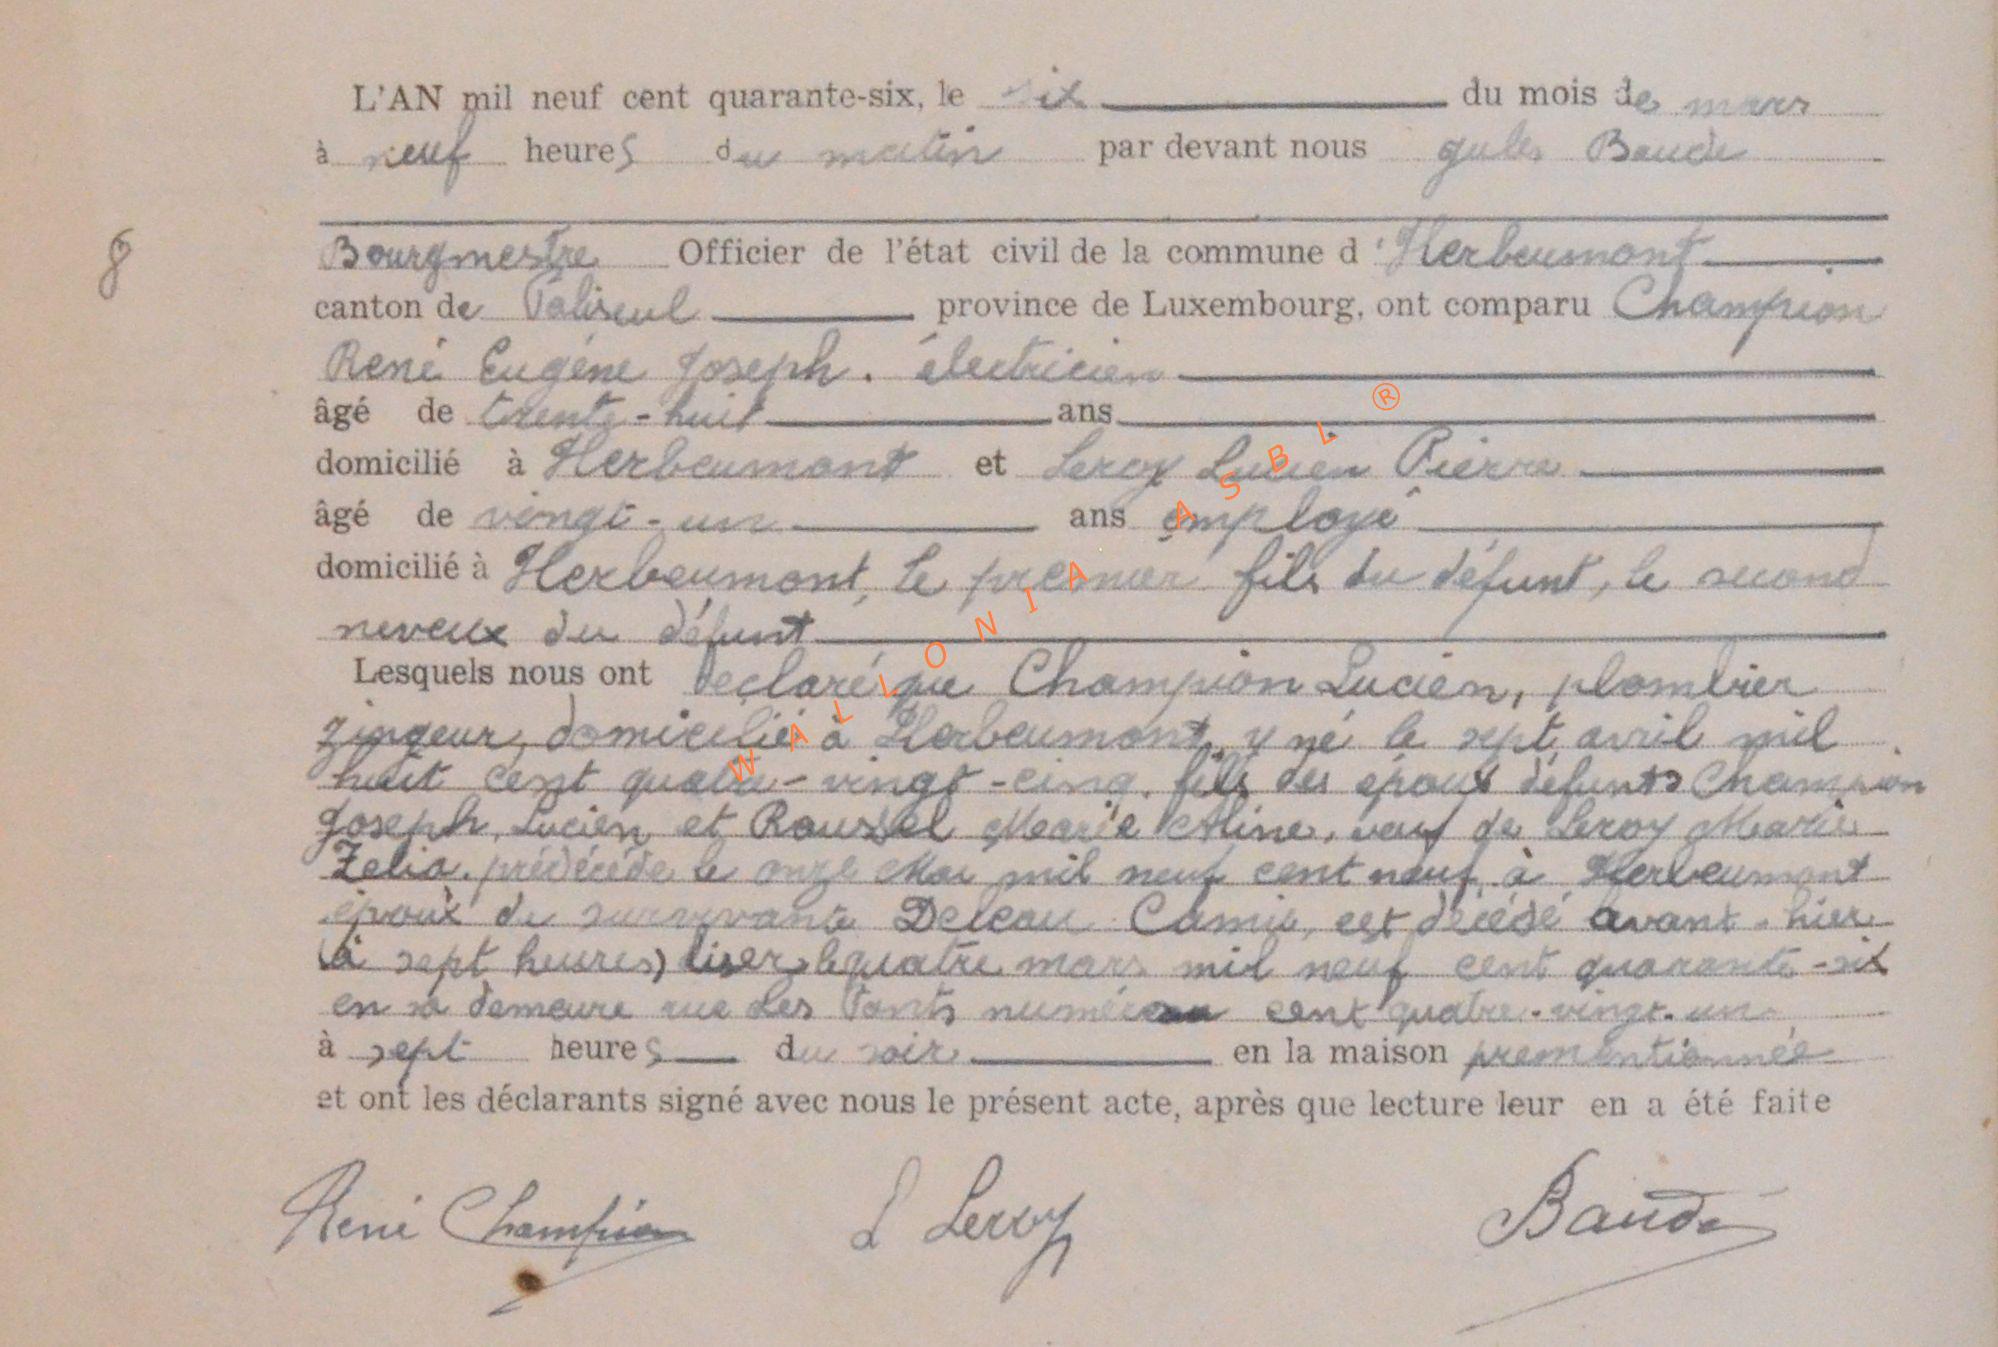 L'AN mil neuf cent quarante-six, le six du mois de mars
à neuf heures du matin par devant nous Jules Baude
8
Bourgmestre Officier de l'état civil de la commune d'Herbeumont
canton de Paliseul province de Luxembourg, ont comparu Champion
René Eugène Joseph. électricien
âgé de trente-huit ans
domicilié à Herbeumont et Leroy Lucien Pierre
âgé de vingt-un ans employé
domicilié à Herbeumont, le premier fils du défunt, le second
neveux du défunt
Lesquels nous ont déclaré que Champion Lucien, plombier
zingeur, domicilié à Herbeumont, y né le sept avril mil
huit cent quatre-vingt-cinq. fils des époux défunts Champion
Joseph, Lucien et Roussel Marie Aline, veuf de Leroy Marie
Zelia. prédécédée le onze Mai mil neuf cent neuf à Herbeumont
époux de survivante Deleau Camie, est décédé avant-hier
(à sept heures) le quatre mars mil neuf cent quarante-six
en sa demeure rue Les numéro cent quatre-vingt-un
à sept heures du soir en la maison prementionnée
et ont les déclarants signé avec nous le présent acte, après que lecture leur en a été faite
René Champion L Leroy Baude
WALLONIA ASBL ®